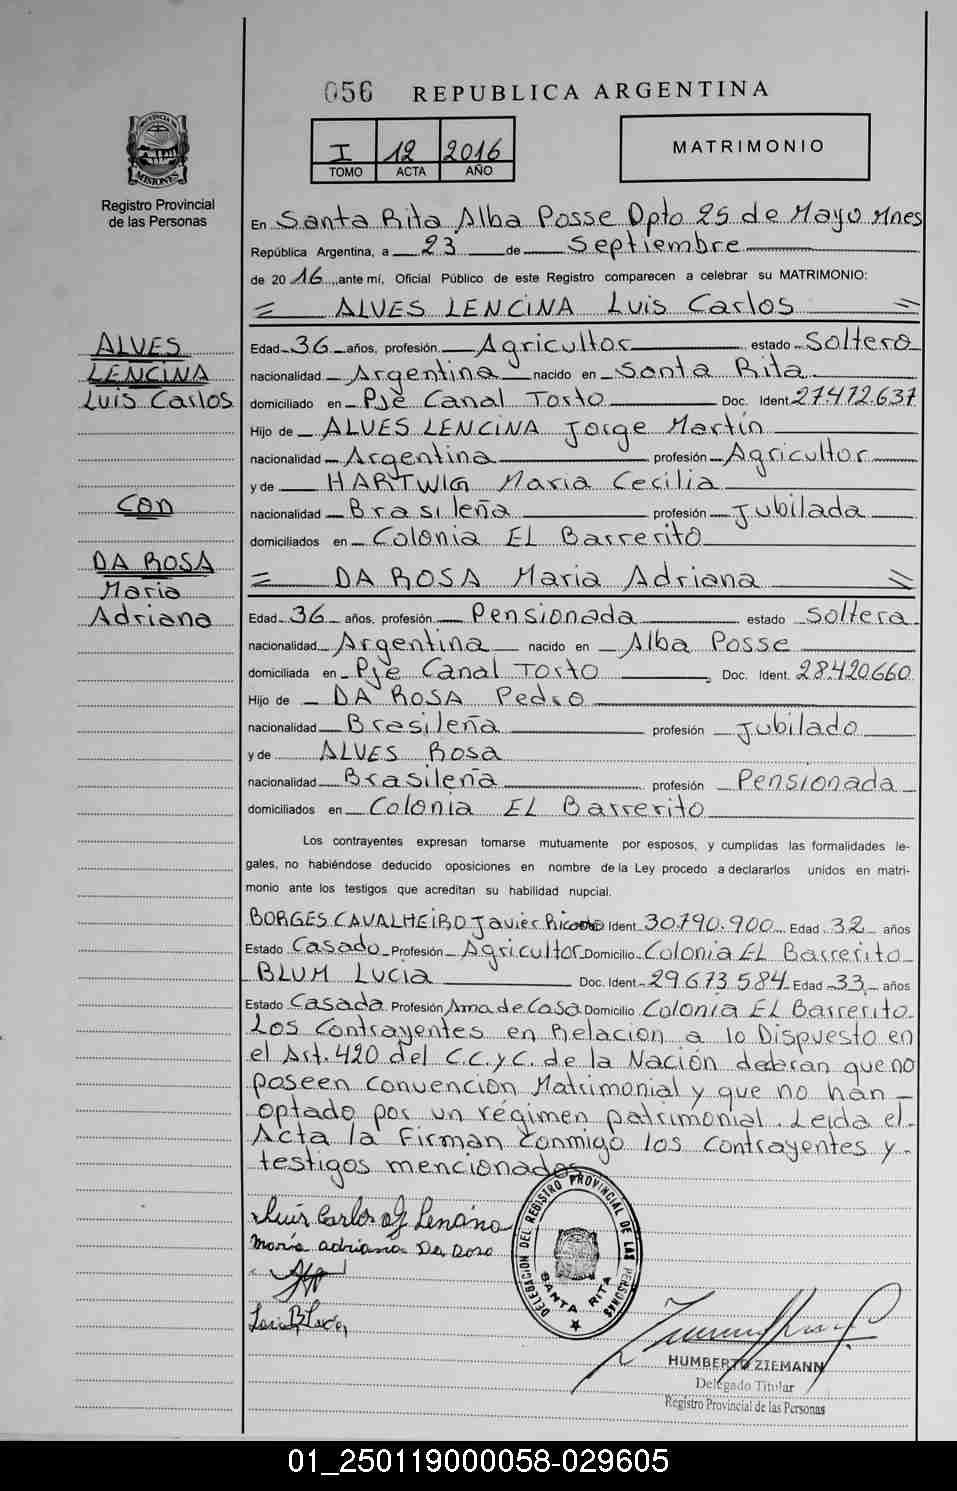 056 REPUBLICA ARGENTINA
I 12 2016
TOMO ACTA AÑO
MATRIMONIO
PROVINCIA DE
MISIONES
Registro Provincial
de las Personas
En Santa Rita Alba Posse Dpto 25 de Mayo Mnes
República Argentina, a 23 de Septiembre
de 2016, ante mí, Oficial Público de este Registro comparecen a celebrar su MATRIMONIO:
= ALVES LENCINA Luis Carlos =
ALVES
LENCINA
Luis Carlos
Con
DA ROSA
Maria
Adriana
Edad 36 años, profesión Agricultor estado Soltero
nacionalidad Argentina nacido en Santa Rita
domiciliado en Pje Canal Torto Doc. Ident. 27.472.637
Hijo de ALVES LENCINA Jorge Martín
nacionalidad Argentina profesión Agricultor
y de HARTWIG Maria Cecilia
nacionalidad Brasileña profesión Jubilada
domiciliados en Colonia EL Barrerito
= DA ROSA Maria Adriana =
Edad 36 años, profesión Pensionada estado Soltera
nacionalidad Argentina nacido en Alba Posse
domiciliada en Pje Canal Torto Doc. Ident. 28.420.660
Hijo de DA ROSA Pedro
nacionalidad Brasileña profesión Jubilado
y de ALVES Rosa
nacionalidad Brasileña profesión Pensionada
domiciliados en Colonia EL Barrerito
Los contrayentes expresan tomarse mutuamente por esposos, y cumplidas las formalidades le-
gales, no habiéndose deducido oposiciones en nombre de la Ley procedo a declararlos unidos en matri-
monio ante los testigos que acreditan su habilidad nupcial.
BORGES CAVALHEIRO Javier Ricardo Ident 30.790.900 Edad 32 años
Estado Casado Profesión Agricultor Domicilio Colonia EL Barrerito
BLUM Lucia Doc. Ident. 29.673.584 Edad 33 años
Estado Casada Profesión Ama de Casa Domicilio Colonia EL Barrerito.
Los Contrayentes en Relación a lo Dispuesto en
el Art. 420 del C.C.y C. de la Nación declaran que no
poseen Convención Matrimonial y que no han -
optado por un régimen patrimonial. Leida el.
Acta la Firman conmigo los Contrayentes y -
testigos mencionados
Luis Carlos A. Lencina
Maria Adriana Da Rosa
DELEGACION DEL REGISTRO PROVINCIAL DE LAS PERSONAS
SANTA RITA
HUMBERTO ZIEMANN
Delegado Titular
Registro Provincial de las Personas
01_250119000058-029605